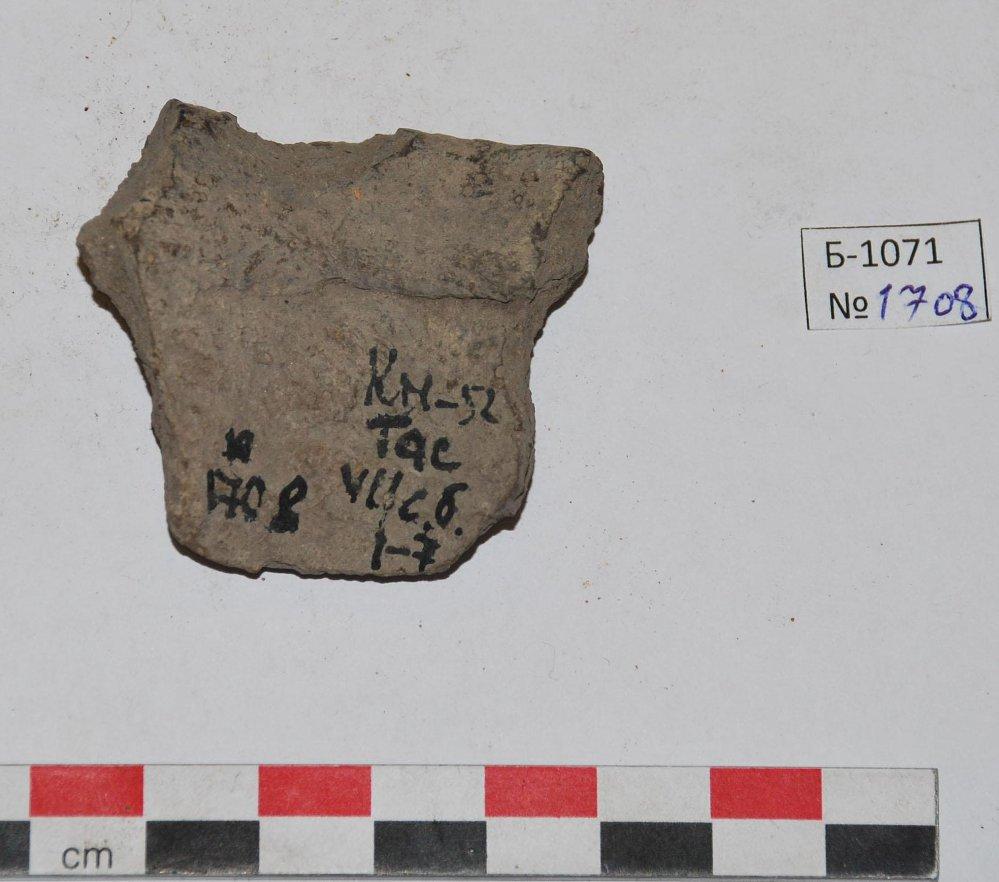 Км-52
Тас
VII с.б.
1-7
№
1708
Б-1071
№ 1708
cm